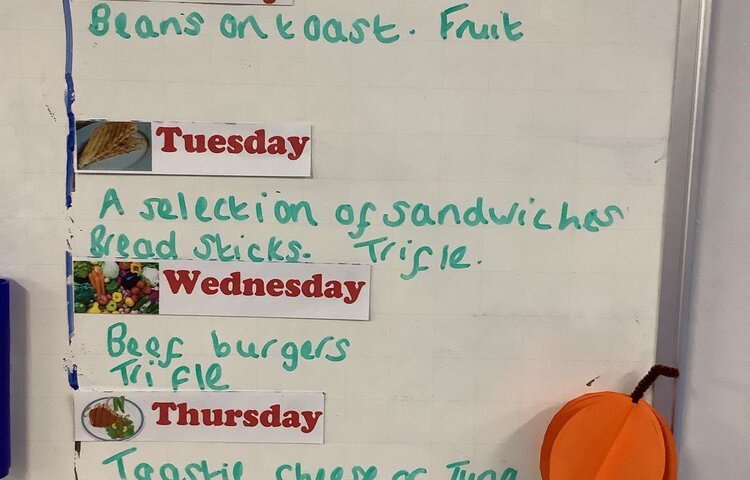 Beans on toast. Fruit
Tuesday
A selection of sandwiches
Bread sticks. Trifle.
Wednesday
Beef burgers
Trifle
Thursday
Toastie cheese or Tuna